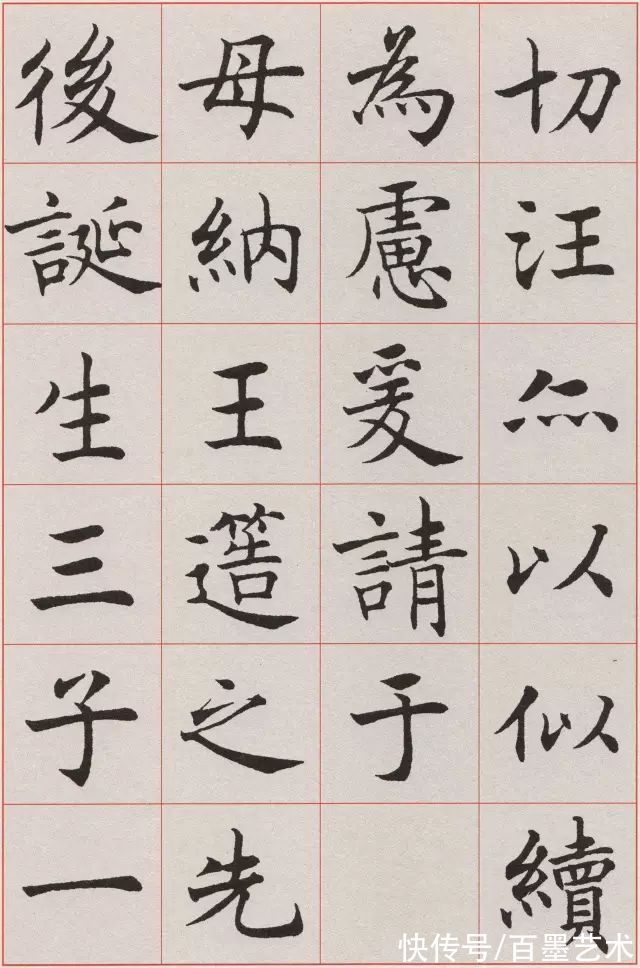 切汪亦以似續
為慮爰請于
母納王簉之先
後誕生三子一
快传号/百墨艺术